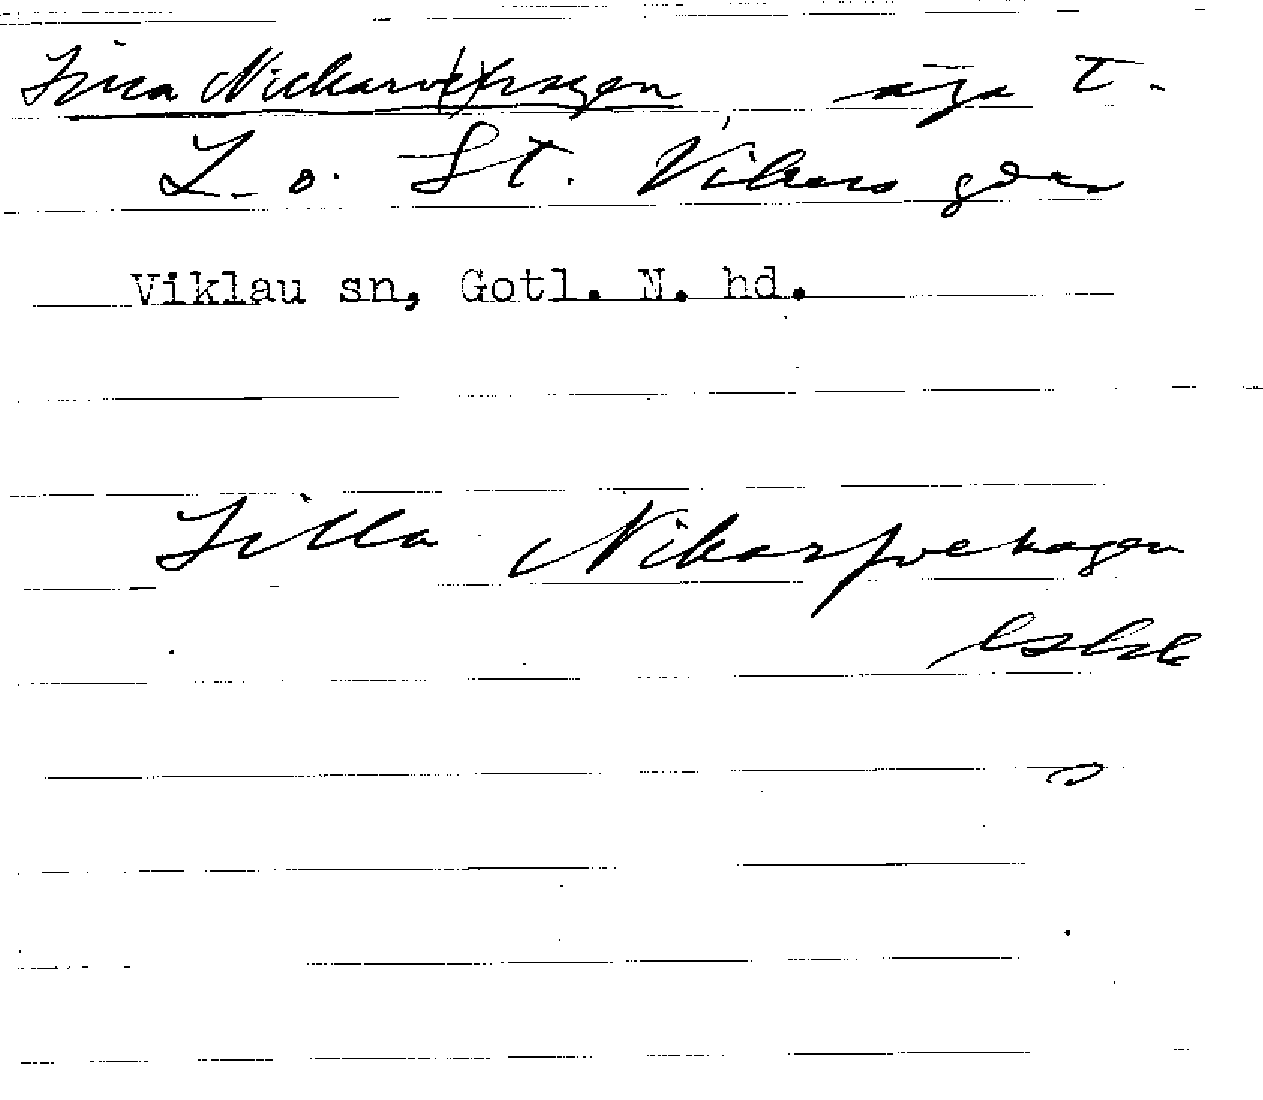 Lilla Nickarve hagen, äga t.
L. o. St. Vikers gdar
Viklau sn, Gotl. N. hd.
Lilla Nikarfve hagen